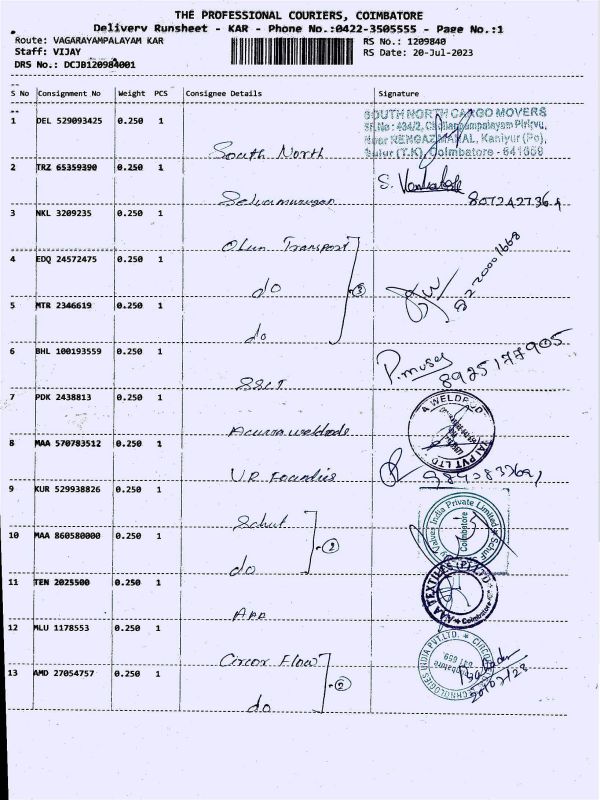 THE PROFESSIONAL COURIERS, COIMBATORE
Delivery Runsheet - KAR - Phone No.:0422-3505555 - Page No.:1
Route: VAGARAYAMPALAYAM KAR
RS No.: 1209840
Staff: VIJAY
RS Date: 20-Jul-2023
DRS No.: DCJB120984001
S No Consignment No Weight PCS Consignee Details Signature
1 DEL 529093425 0.250 1 South North
SOUTH NORTH CARGO MOVERS
2 TRZ 65359390 0.250 1 Selvamurugan
S. Venkatesh
3 NKL 3209235 0.250 1 Olun Transport
4 EDQ 24572475 0.250 1 do
3
5 MTR 2346619 0.250 1 do
6 BHL 100193559 0.250 1
P. moses
8925177905
7 PDK 2438813 0.250 1
8 MAA 570783512 0.250 1
9 KUR 529938826 0.250 1 Schut
India Private Limited
Coimbatore
10 MAA 860580000 0.250 1 do
2
11 TEN 2025500 0.250 1
AAA TEXTILES (P) LTD
Coimbatore
12 MLU 1178553 0.250 1 Circor Flow
13 AMD 27054757 0.250 1 do
2
CIRCOR FLOW TECHNOLOGIES INDIA PVT.LTD.
20/07/23